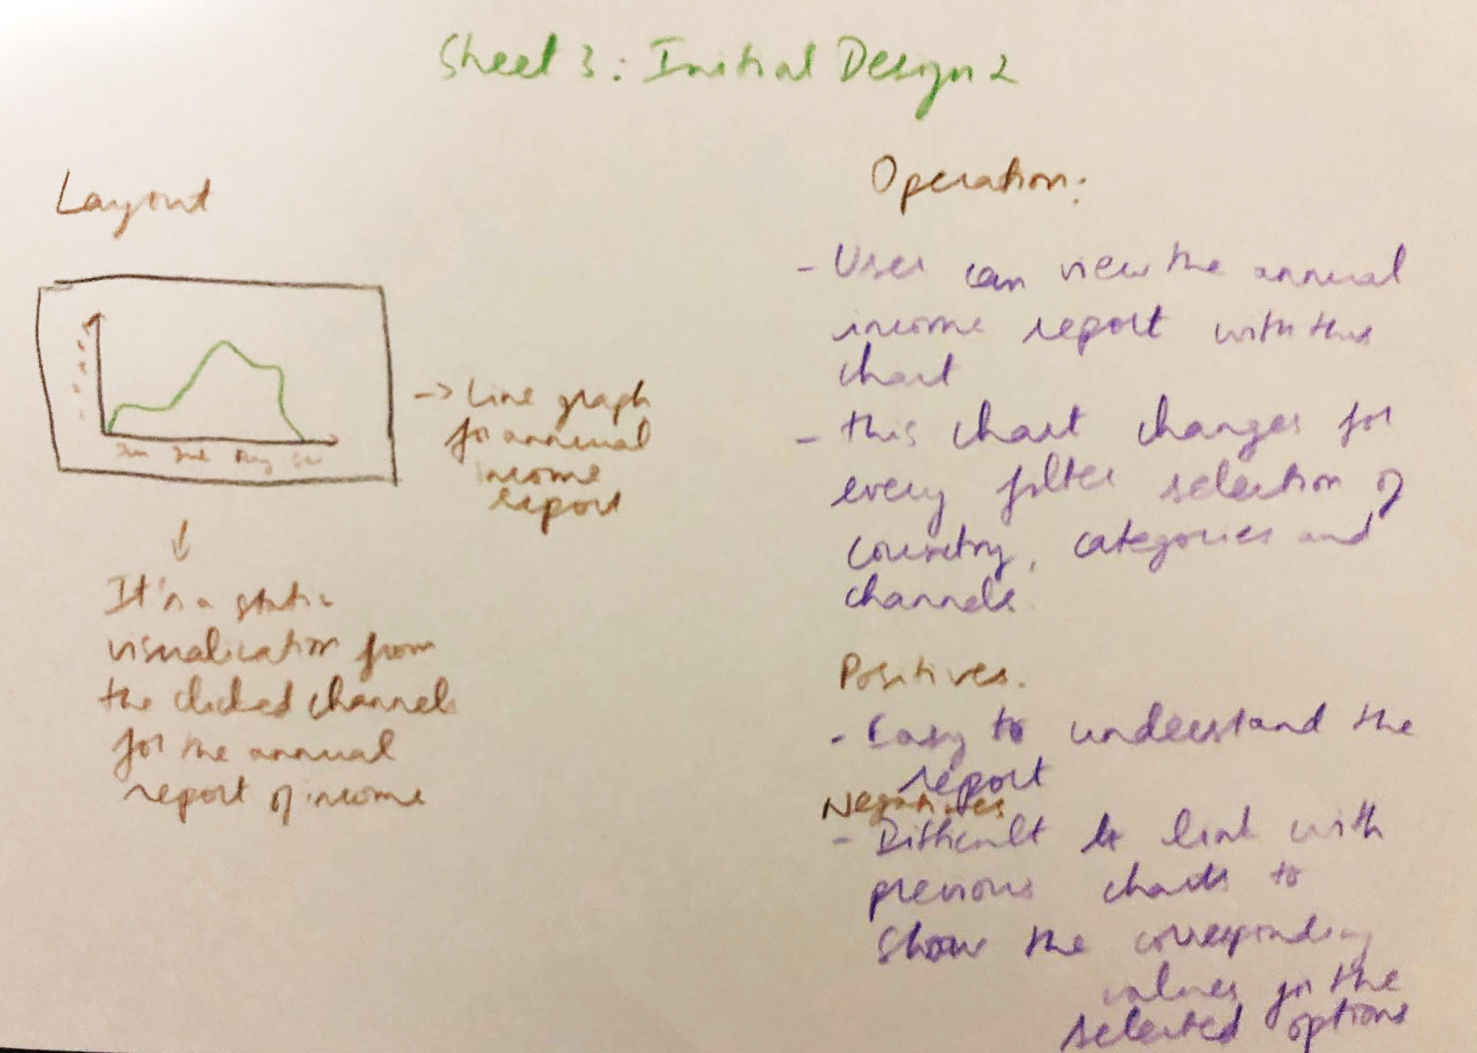 Sheet 3: Initial Design 2
Layout
Jan Aug
-> Line graph
for annual
income
report
It's a static
visualization from
the clicked channels
for the annual
report of income
Operation:
- User can view the annual
income report with this
chart
- this chart changes for
every filter selection of
country, categories and
channels.
Positives.
- Easy to understand the
report
Negatives
- Difficult to link with
previous charts to
show the corresponding
values for the
selected options